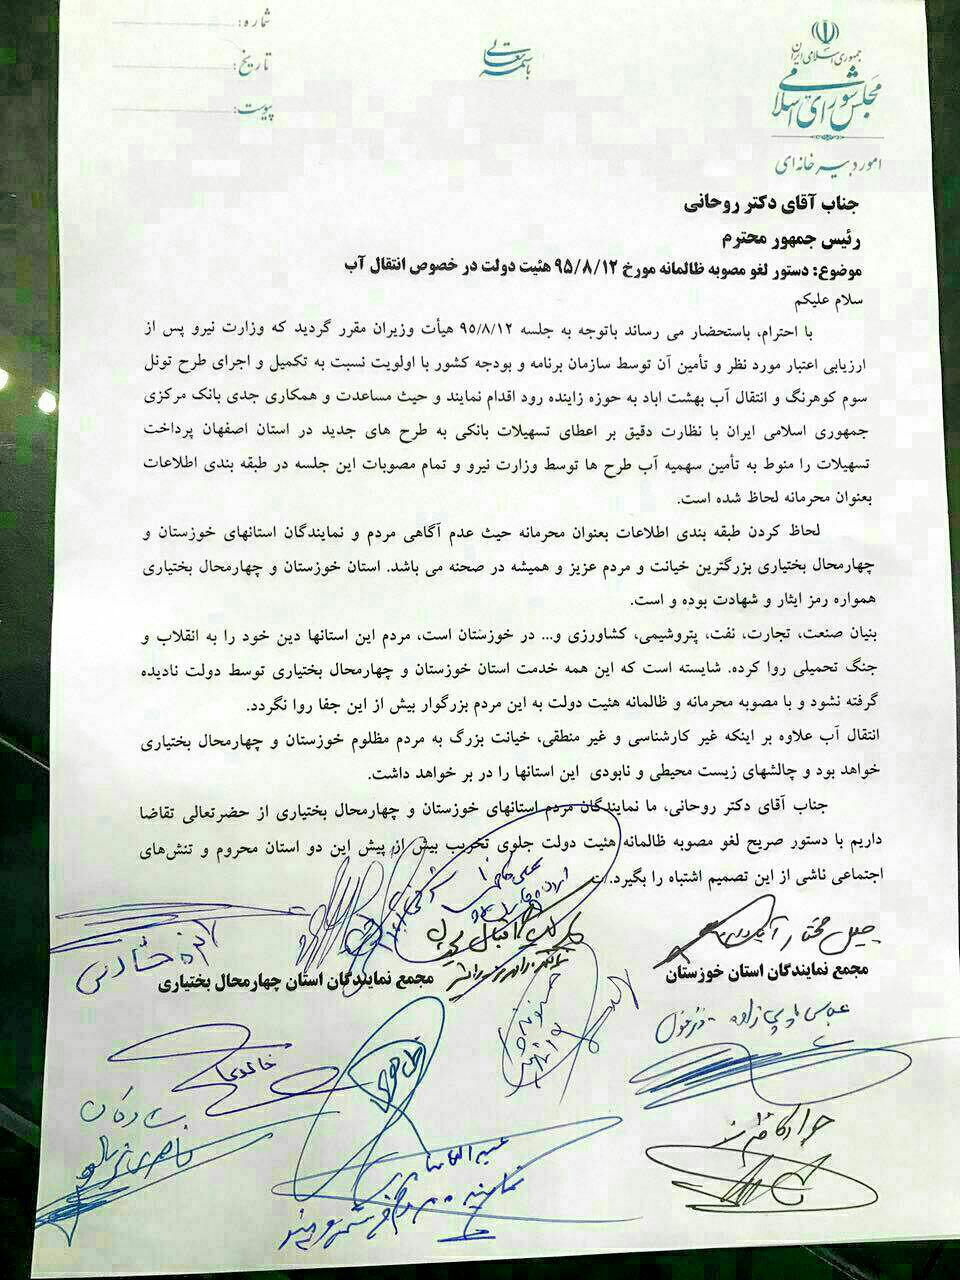 شماره:
تاریخ:
پیوست:
باسمه تعالی
جمهوری اسلامی ایران
مجلس شورای اسلامی
امور دبیرخانه‌ای
جناب آقای دکتر روحانی
رئیس جمهور محترم
موضوع: دستور لغو مصوبه ظالمانه مورخ ۹۵/۸/۱۲ هئیت دولت در خصوص انتقال آب
سلام علیکم
با احترام، باستحضار می رساند باتوجه به جلسه ۹۵/۸/۱۲ هیأت وزیران مقرر گردید که وزارت نیرو پس از
ارزیابی اعتبار مورد نظر و تأمین آن توسط سازمان برنامه و بودجه کشور با اولویت نسبت به تکمیل و اجرای طرح تونل
سوم کوهرنگ و انتقال آب بهشت اباد به حوزه زاینده رود اقدام نمایند و حیث مساعدت و همکاری جدی بانک مرکزی
جمهوری اسلامی ایران با نظارت دقیق بر اعطای تسهیلات بانکی به طرح های جدید در استان اصفهان پرداخت
تسهیلات را منوط به تأمین سهمیه آب طرح ها توسط وزارت نیرو و تمام مصوبات این جلسه در طبقه بندی اطلاعات
بعنوان محرمانه لحاظ شده است.
لحاظ کردن طبقه بندی اطلاعات بعنوان محرمانه حیث عدم آگاهی مردم و نمایندگان استانهای خوزستان و
چهارمحال بختیاری بزرگترین خیانت و مردم عزیز و همیشه در صحنه می باشد. استان خوزستان و چهارمحال بختیاری
همواره رمز ایثار و شهادت بوده و است.
بنیان صنعت، تجارت، نفت، پتروشیمی، کشاورزی و... در خوزستان است، مردم این استانها دین خود را به انقلاب و
جنگ تحمیلی روا کرده. شایسته است که این همه خدمت استان خوزستان و چهارمحال بختیاری توسط دولت نادیده
گرفته نشود و با مصوبه محرمانه و ظالمانه هئیت دولت به این مردم بزرگوار بیش از این جفا روا نگردد.
انتقال آب علاوه بر اینکه غیر کارشناسی و غیر منطقی، خیانت بزرگ به مردم مظلوم خوزستان و چهارمحال بختیاری
خواهد بود و چالشهای زیست محیطی و نابودی این استانها را در بر خواهد داشت.
جناب آقای دکتر روحانی، ما نمایندگان مردم استانهای خوزستان و چهارمحال بختیاری از حضرتعالی تقاضا
داریم با دستور صریح لغو مصوبه ظالمانه هئیت دولت جلوی تخریب بیش از پیش این دو استان محروم و تنش‌های
اجتماعی ناشی از این تصمیم اشتباه را بگیرد.
جلیل مختار
مجمع نمایندگان استان خوزستان
مجمع نمایندگان استان چهارمحال بختیاری
عباس پاپی زاده دزفول
جواد کاظم نسب